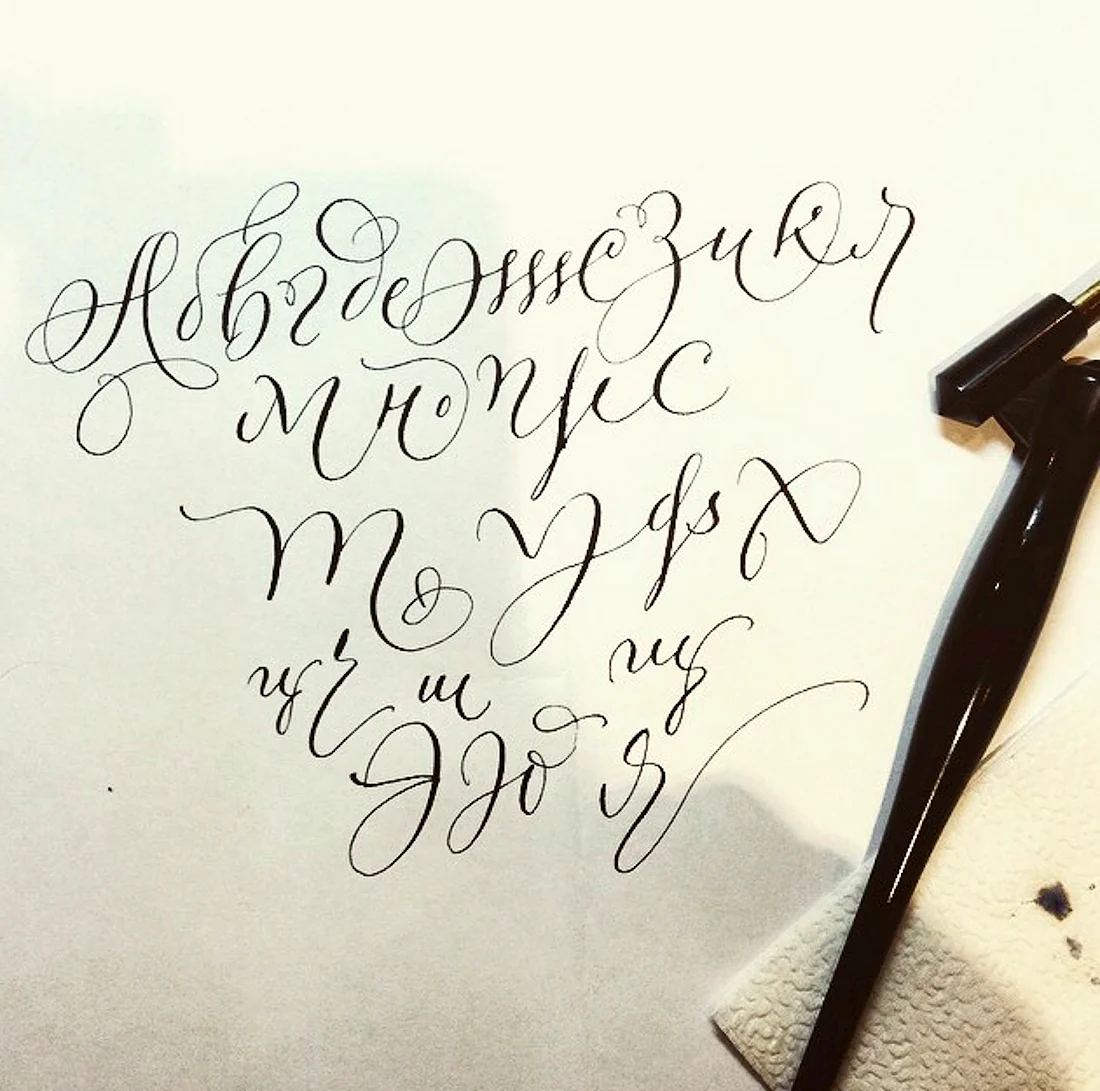 Абвгдежзикл
мнопрс
ту фх
цч ш щ
эю я